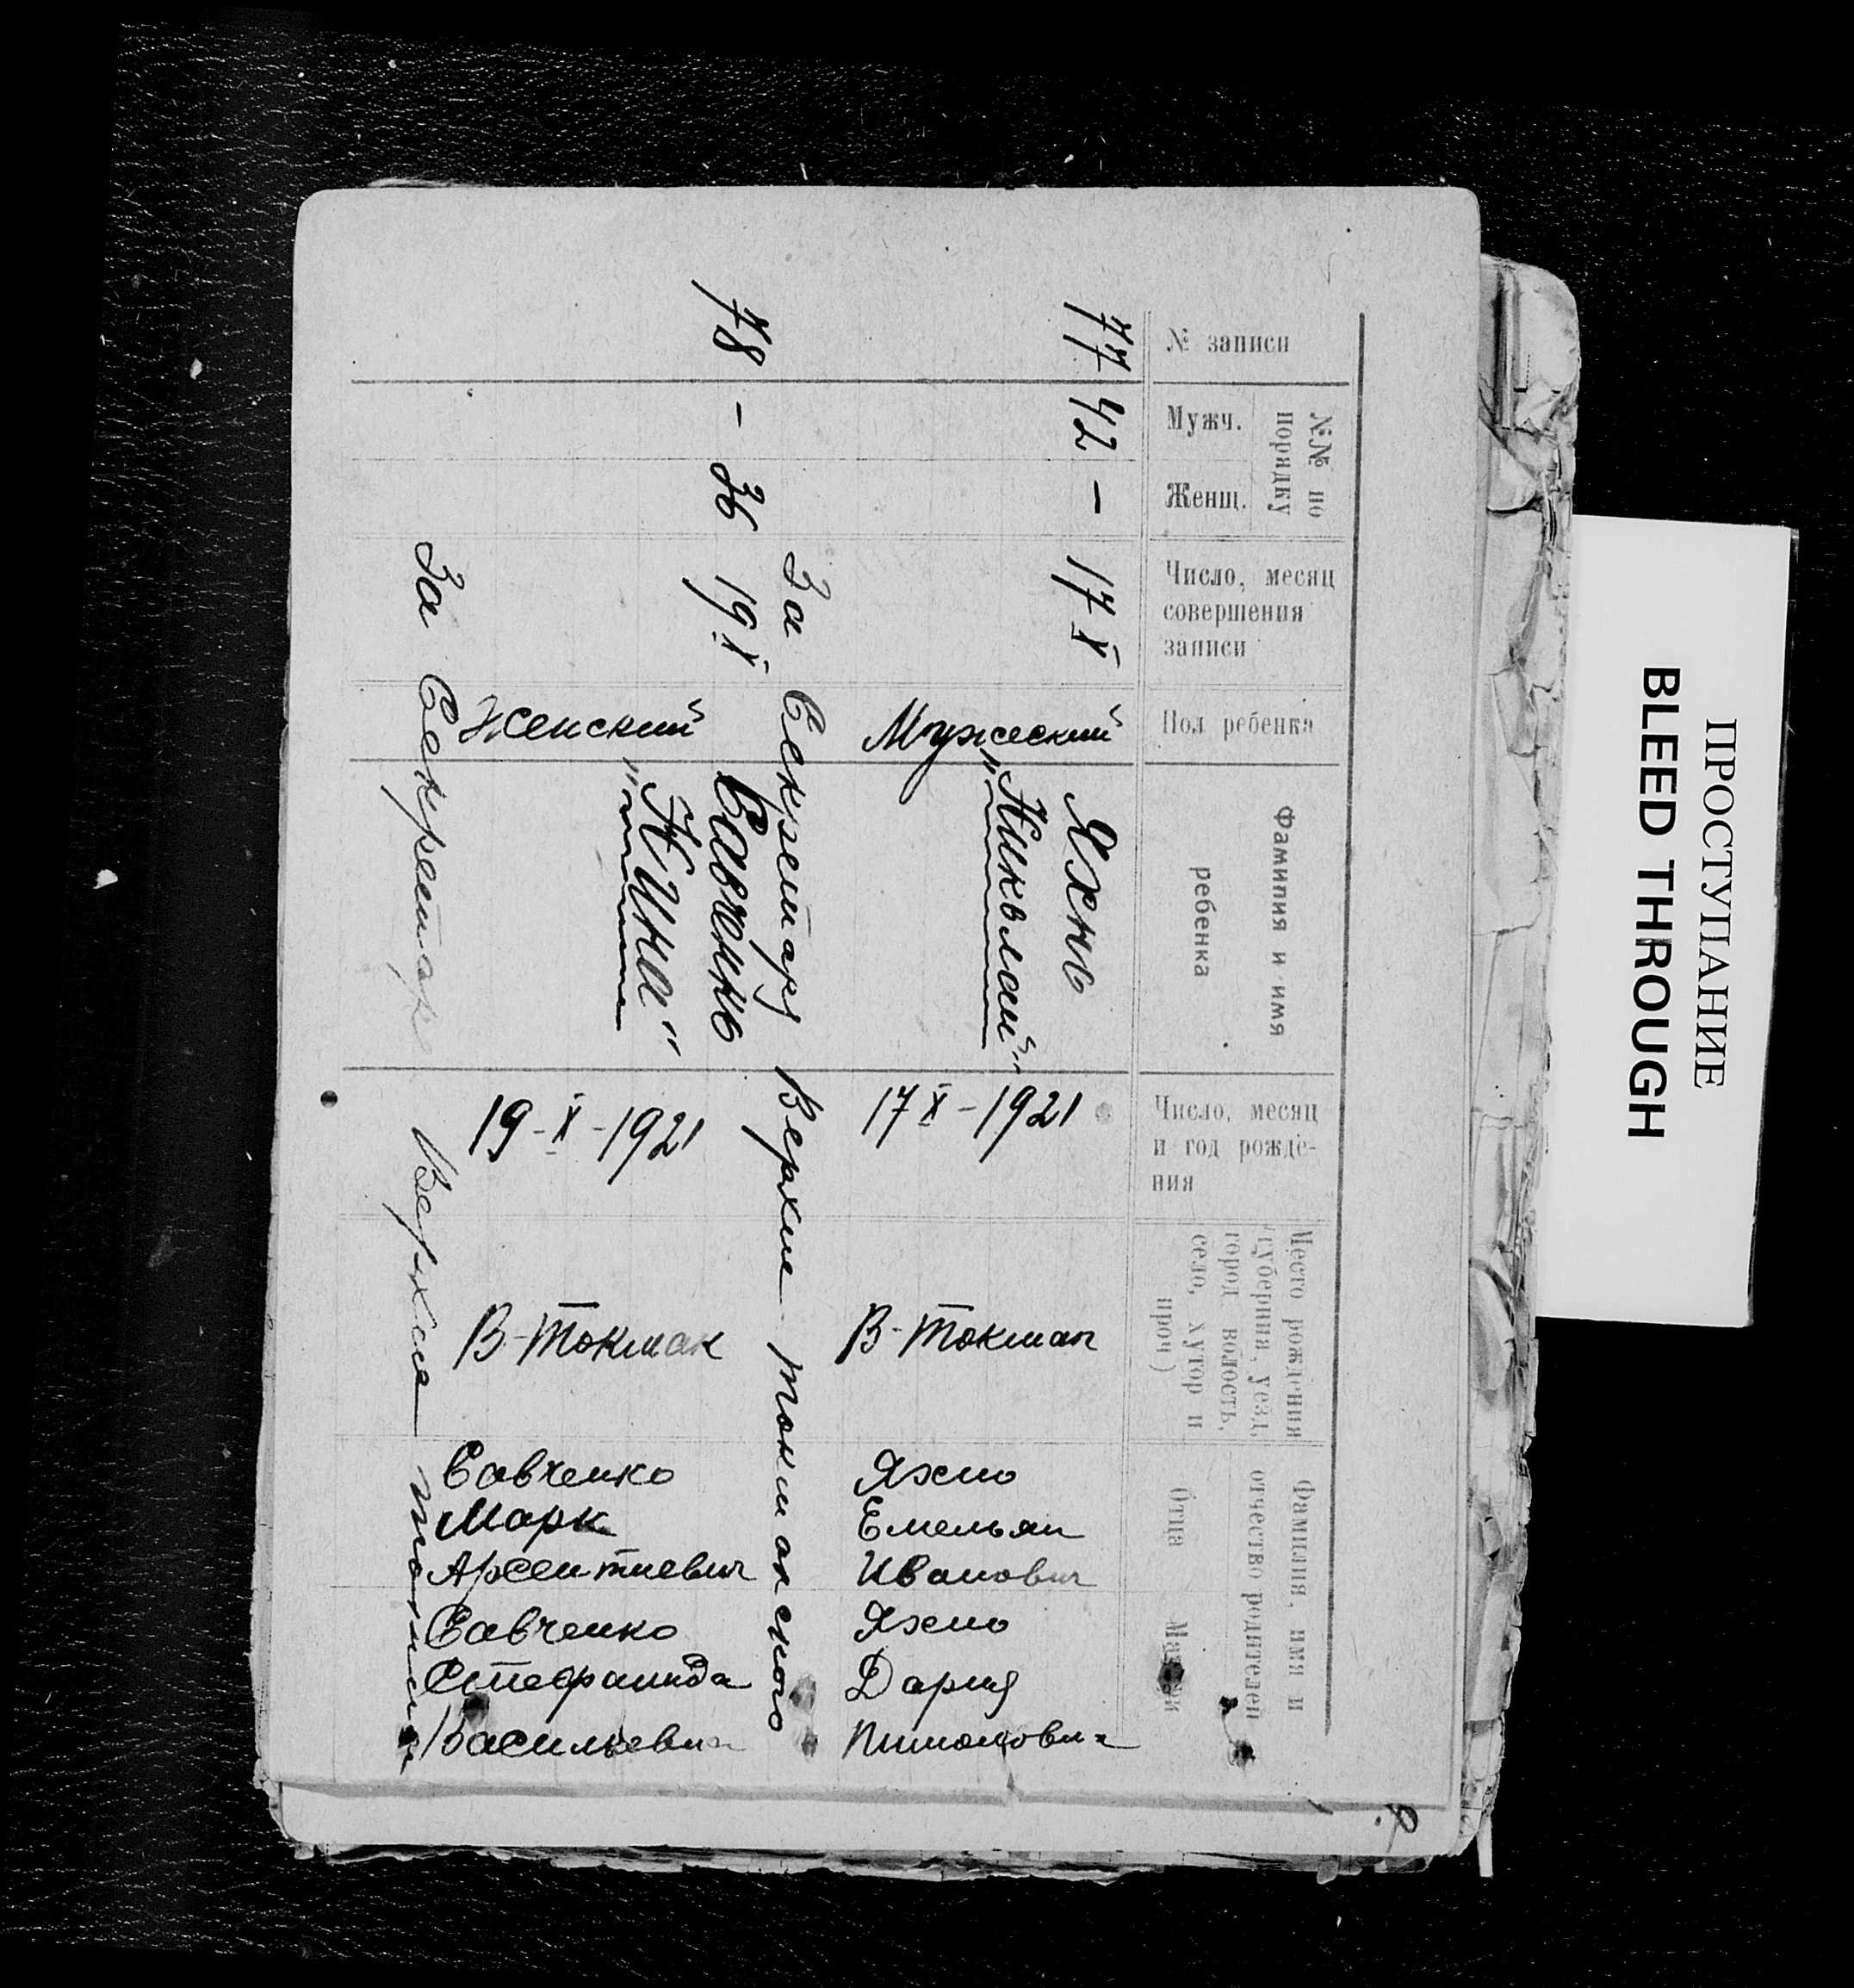 ПРОСТУПАНИЕ
BLEED THROUGH
№ записи
№№ по порядку
Мужч.
Женщ.
Число, месяц
совершения
записи
Пол ребенка
Фамилия и имя
ребенка
Число, месяц
и год рожде-
ния
Место рождения
губерния, уезд,
город волость,
село, хутор и
проч)
Фамилия, имя и
отчество родителей
Отца
77
42
-
17 X
Мужеский
Яхно
"Николай"
17 X - 1921
В-Токмак
Яхно
Емельян
Иванович
Яхно
Дария
За Секретаря Верхне-токмакского
78
-
36
19 X
Женский
Савченко
"Нина"
19-X-1921
В-Токмак
Савченко
Марк
Арсентиевич
Савченко
Стефанида
За Секретаря